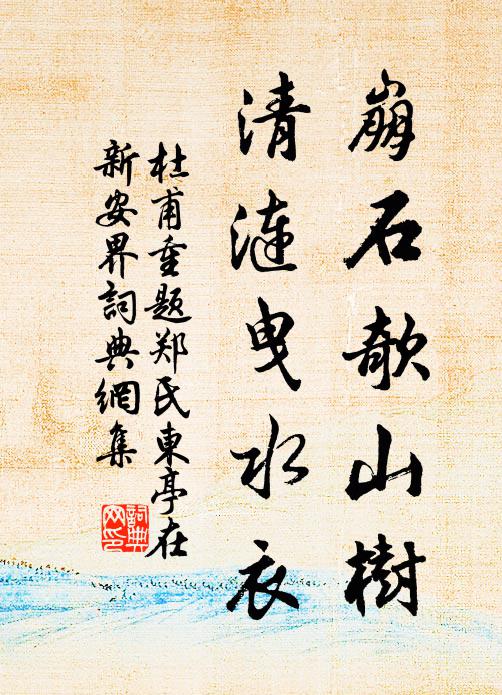 崩石欹山樹
清漣曳水衣
杜甫重題郑氏東亭在
新安界詞典網集
詞典
网印